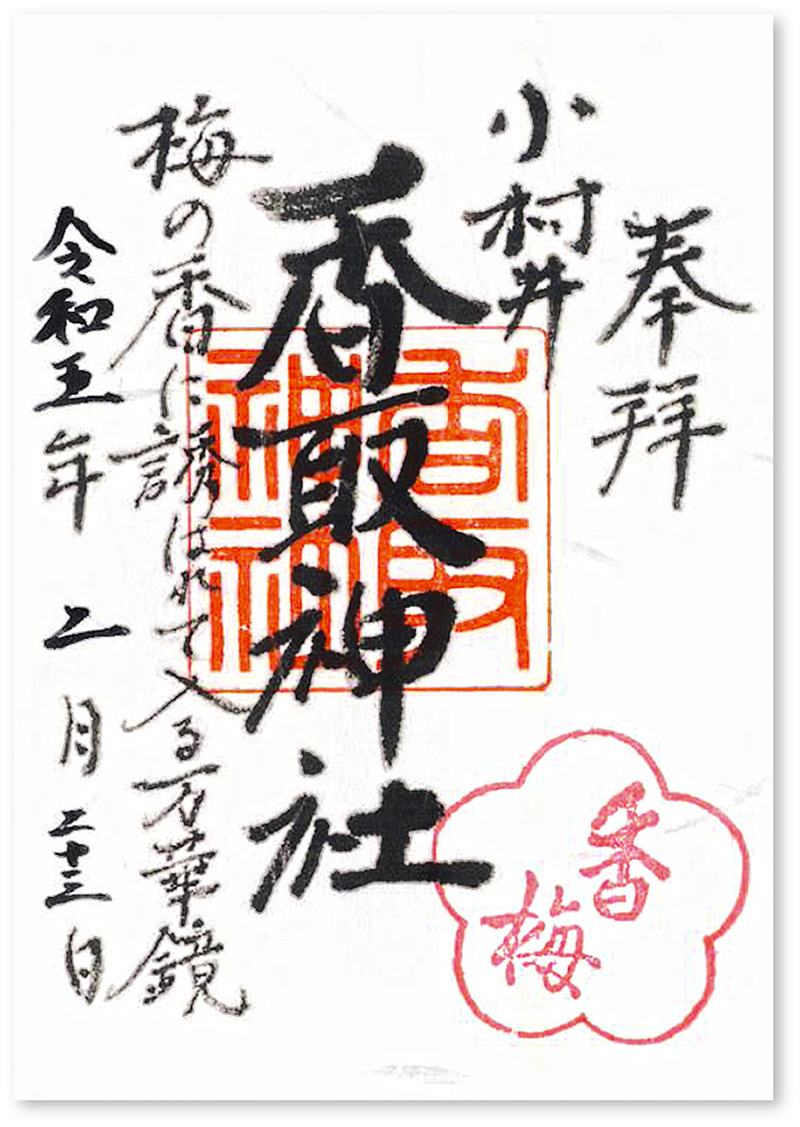 奉拝
小村井
香取神社
香取
神社
梅の香に誘はれて入る万華鏡
令和五年 二月 二十三日
香梅